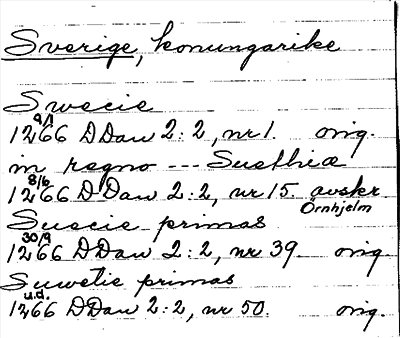 Sverige, konungarike
Swecie
9/1
1266 DDan 2:2, nr 1. orig.
in regno --- Suethiæ
8/6
1266 DDan 2:2, nr 15. avskr
Örnhjelm
Suecie primas
30/9
1266 DDan 2:2, nr 39. orig.
Suwetie primas
u.d.
1266 DDan 2:2, nr 50. orig.